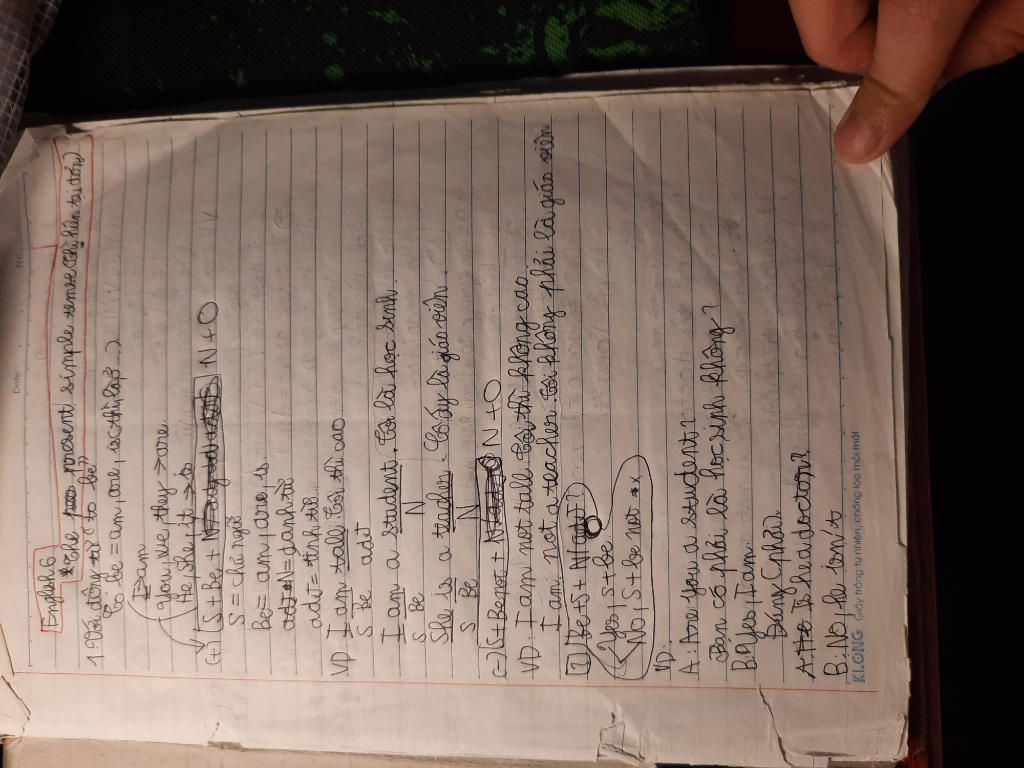 Date
No.
English 6
* The present simple tense (Thì hiện tại đơn)
1. Với động từ "to be"
To be = am, are, is (thì, là, ở...)
I > am
you, we, they > are
He, she, it -> is
(+) S + be + N + O
S = chủ ngữ
Be = am, are, is
N = danh từ
adj = tính từ
VD: I am tall Tôi thì cao
S Be adj
I am a student. Tôi là học sinh
S Be N
She is a teacher. Cô ấy là giáo viên.
S Be N
(-) S + Be not + N + O
VD: I am not tall Tôi thì không cao
I am not a teacher Tôi không phải là giáo viên
(?) Be + S + N/adj?
Yes, S + be
No, S + be not
VD:
A: Are you a student?
Bạn có phải là học sinh không?
B: Yes, I am
Đúng (phải)
A: Is he a doctor?
B: No, he isn't
KLONG Giấy trắng tự nhiên, chống lóa mỏi mắt